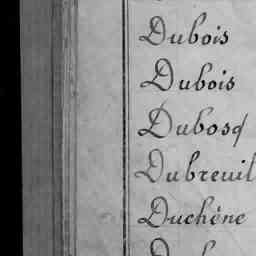 Dubois
Dubois
Dubosq
Dubreuil
Duchêne